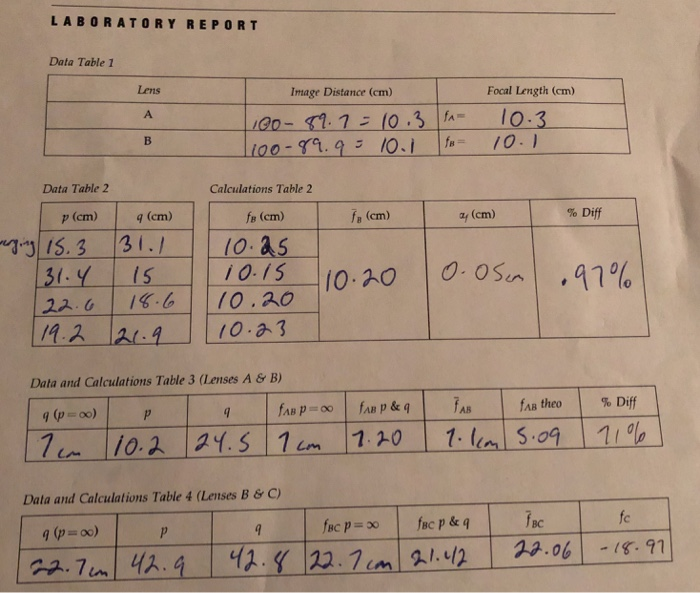 LABORATORY REPORT
Data Table 1
Lens Image Distance (cm) Focal Length (cm)
A 100 - 89.7 = 10.3 fA= 10.3
B 100 - 89.9 = 10.1 fB= 10.1
Data Table 2 Calculations Table 2
p (cm) q (cm) fB (cm) f̄B (cm) αf (cm) % Diff
15.3 31.1 10.25
31.4 15 10.15 10.20 0.05cm .97%
22.6 18.6 10.20
19.2 21.9 10.23
Data and Calculations Table 3 (Lenses A & B)
q (p=∞) p q fAB p=∞ fAB p & q f̄AB fAB theo % Diff
7cm 10.2 24.5 7cm 7.20 7.1cm 5.09 71%
Data and Calculations Table 4 (Lenses B & C)
q (p=∞) p q fBC p=∞ fBC p & q f̄BC fc
22.7cm 42.9 42.8 22.7cm 21.42 22.06 -18.97